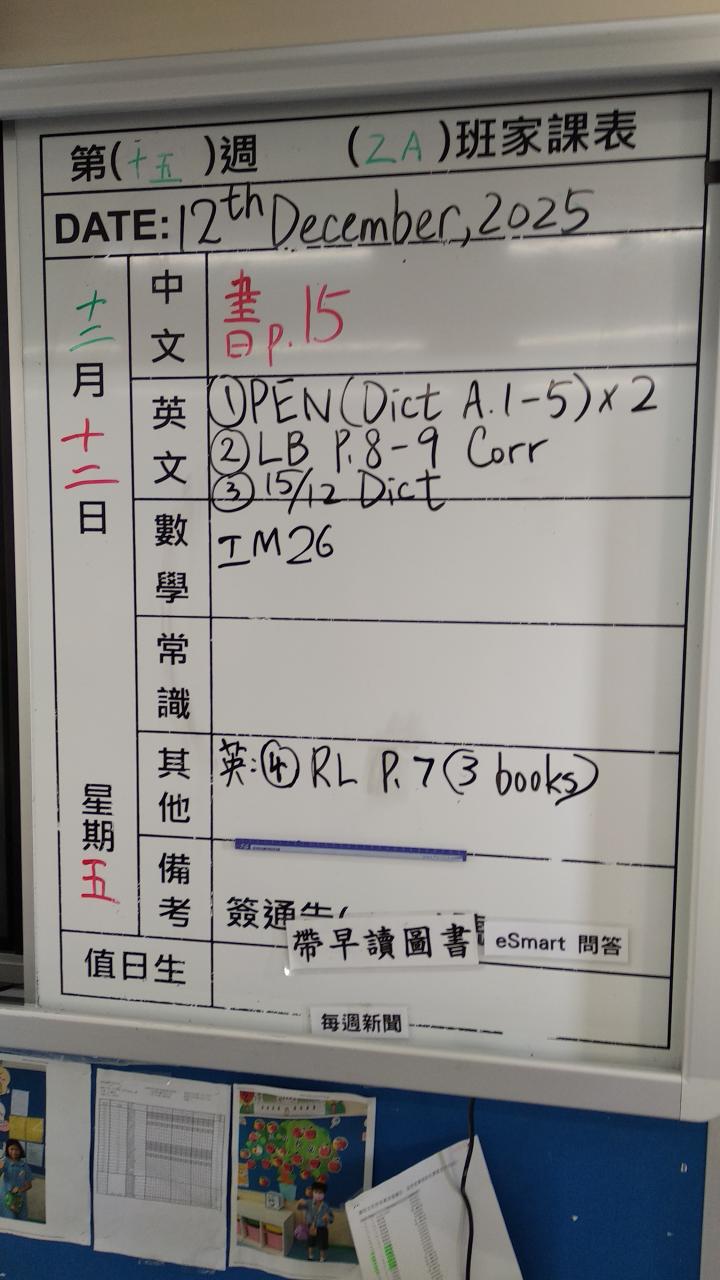 第(十五)週 (2A)班家課表
DATE: 12th December, 2025
十二月十二日
星期五
中文
書p.15
英文
①PEN(Dict A.1-5)×2
②LB P.8-9 Corr
③15/12 Dict
數學
IM26
常識
其他
英:④RL P.7(3 books)
備考
簽通告(
帶早讀圖書
eSmart 問答
值日生
每週新聞